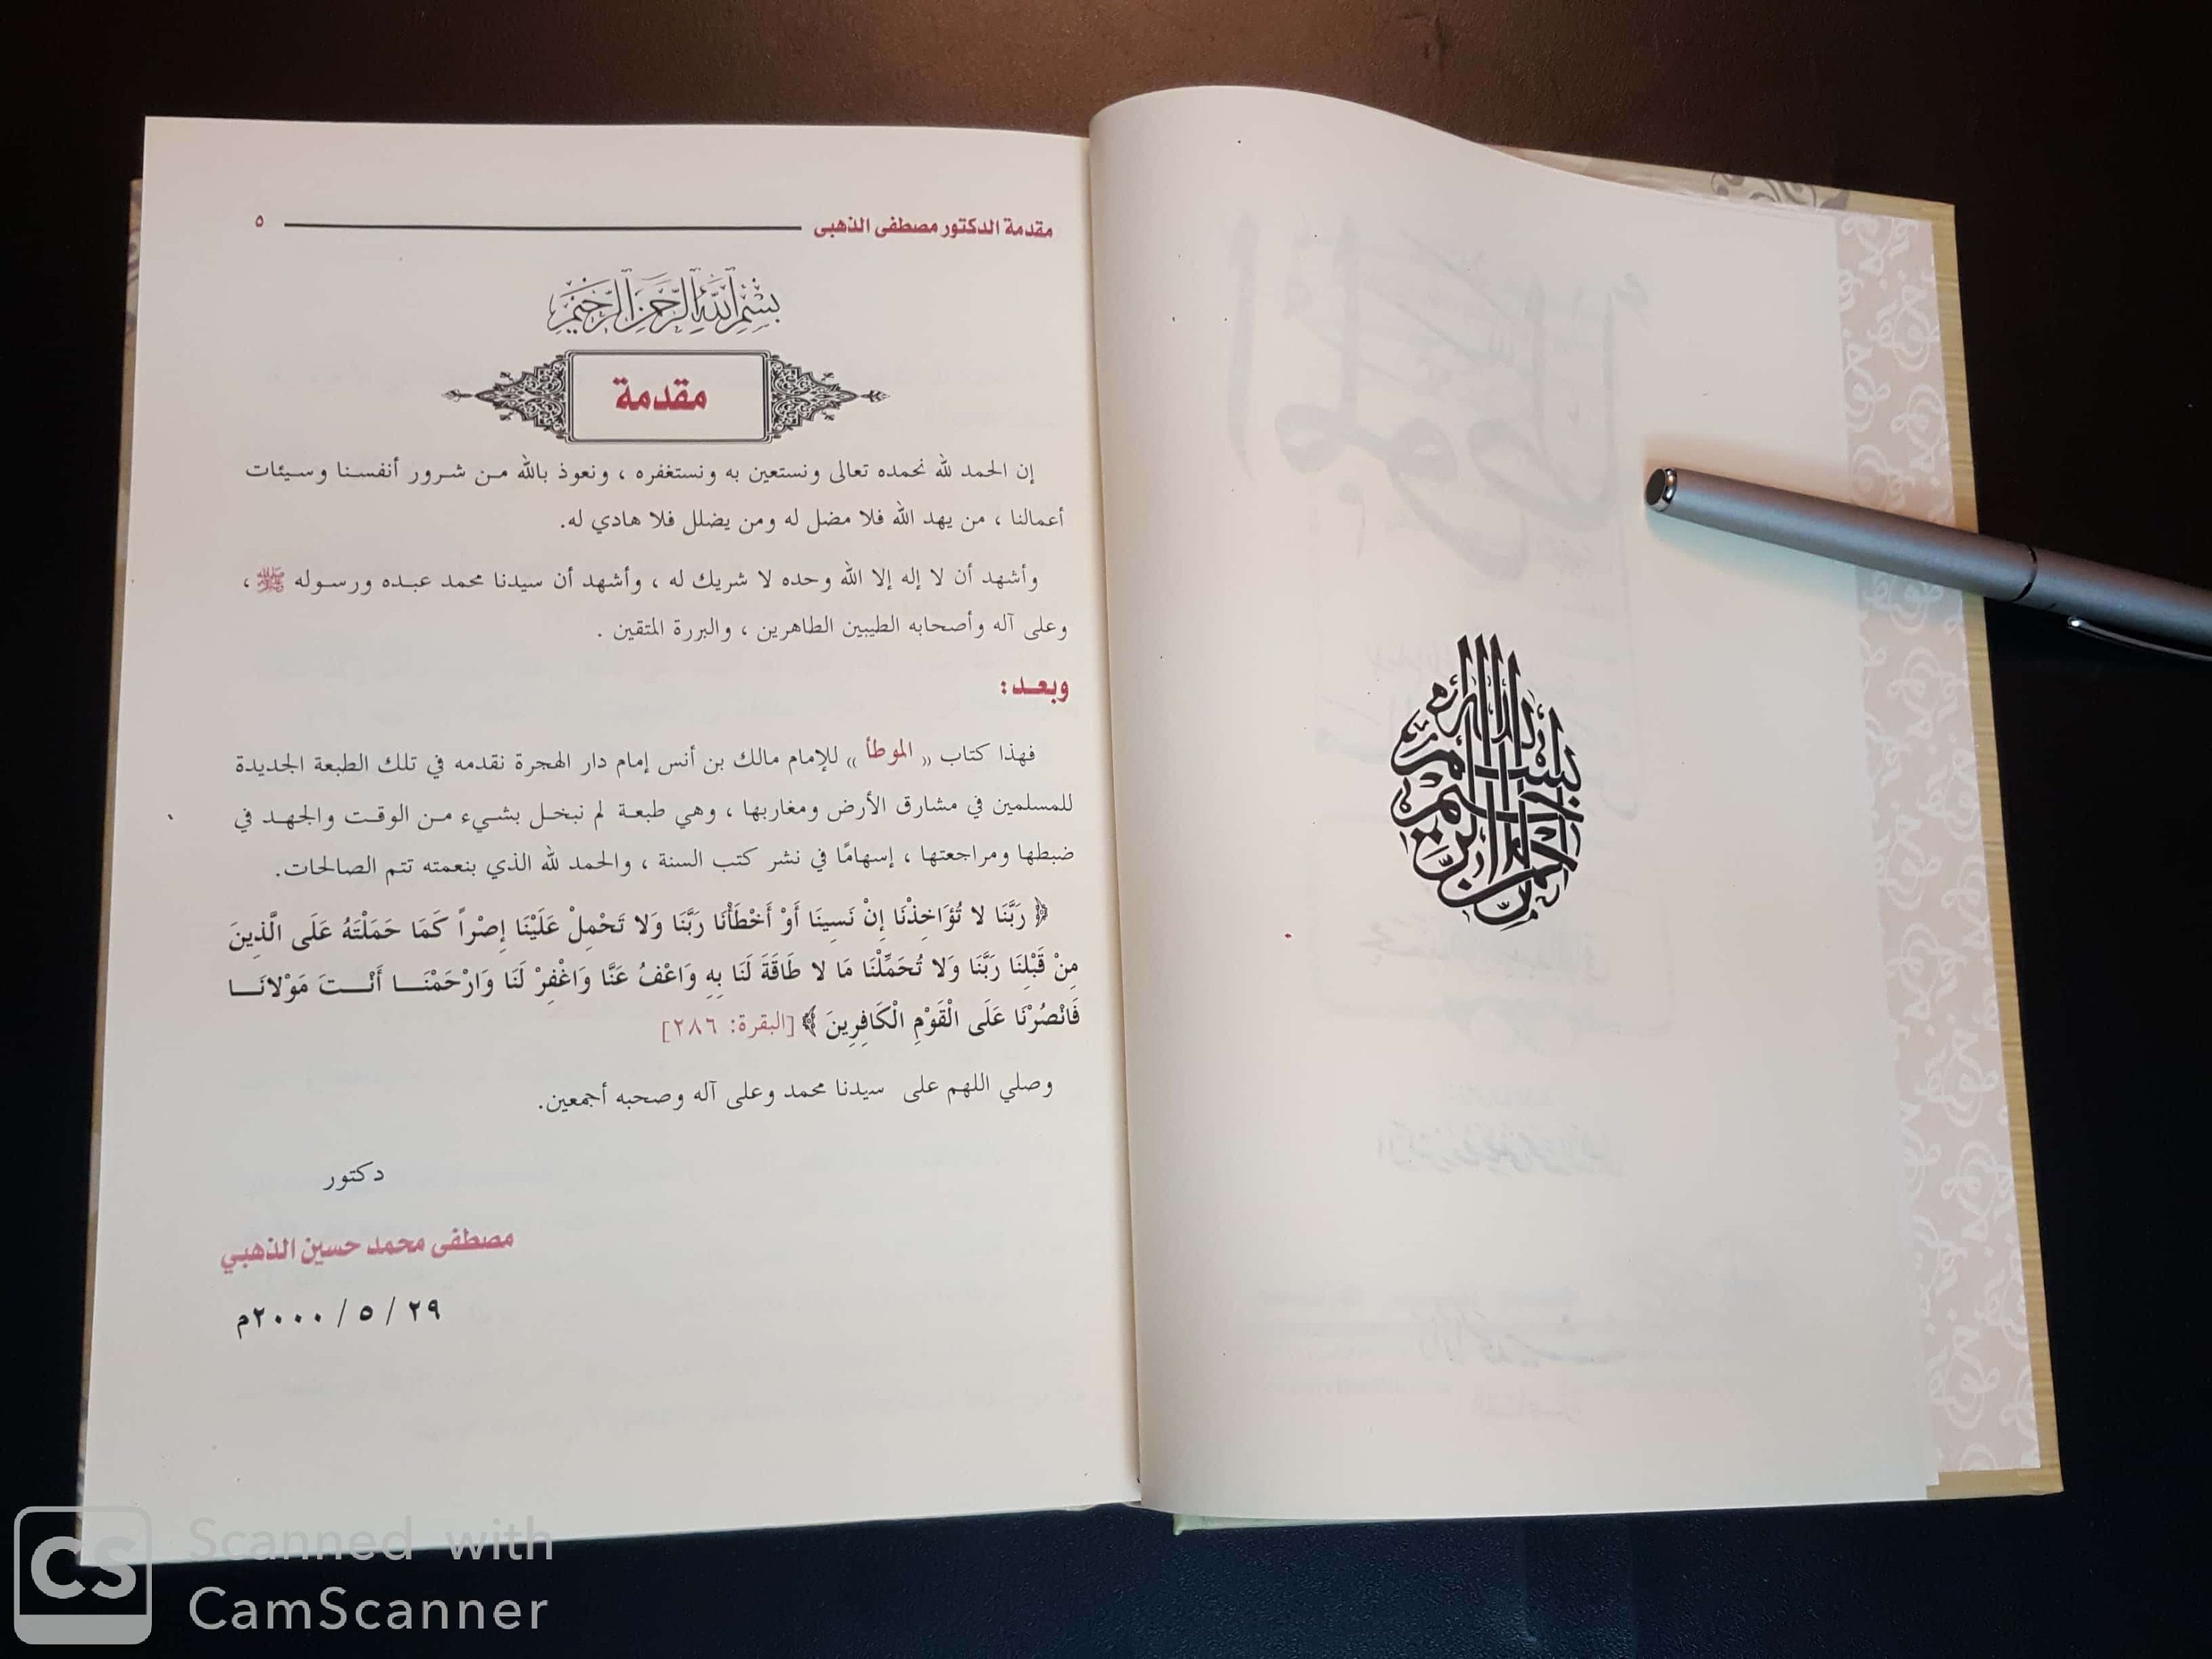 بسم الله الرحمن الرحيم
مقدمة الدكتور مصطفى الذهبى ٥
بسم الله الرحمن الرحيم
مقدمة
إن الحمد لله نحمده تعالى ونستعين به ونستغفره ، ونعوذ بالله من شرور أنفسنا وسيئات
أعمالنا ، من يهد الله فلا مضل له ومن يضلل فلا هادي له.
وأشهد أن لا إله إلا الله وحده لا شريك له ، وأشهد أن سيدنا محمد عبده ورسوله ﷺ ،
وعلى آله وأصحابه الطيبين الطاهرين ، والبررة المتقين .
وبعد:
فهذا كتاب « الموطأ » للإمام مالك بن أنس إمام دار الهجرة نقدمه في تلك الطبعة الجديدة
للمسلمين في مشارق الأرض ومغاربها ، وهي طبعة لم نبخل بشيء من الوقت والجهد في
ضبطها ومراجعتها ، إسهامًا في نشر كتب السنة ، والحمد لله الذي بنعمته تتم الصالحات.
﴿ رَبَّنَا لا تُؤَاخِذْنَا إِنْ نَسِينَا أَوْ أَخْطَأْنَا رَبَّنَا وَلا تَحْمِلْ عَلَيْنَا إِصْراً كَمَا حَمَلْتَهُ عَلَى الَّذِينَ
مِنْ قَبْلِنَا رَبَّنَا وَلا تُحَمِّلْنَا مَا لا طَاقَةَ لَنَا بِهِ وَاعْفُ عَنَّا وَاغْفِرْ لَنَا وَارْحَمْنَا أَنْتَ مَوْلانَا
فَانْصُرْنَا عَلَى الْقَوْمِ الْكَافِرِينَ ﴾ [البقرة: ٢٨٦]
وصلي اللهم على سيدنا محمد وعلى آله وصحبه أجمعين.
دكتور
مصطفى محمد حسين الذهبي
٢٩ / ٥ / ٢٠٠٠م
CS
Scanned with
CamScanner